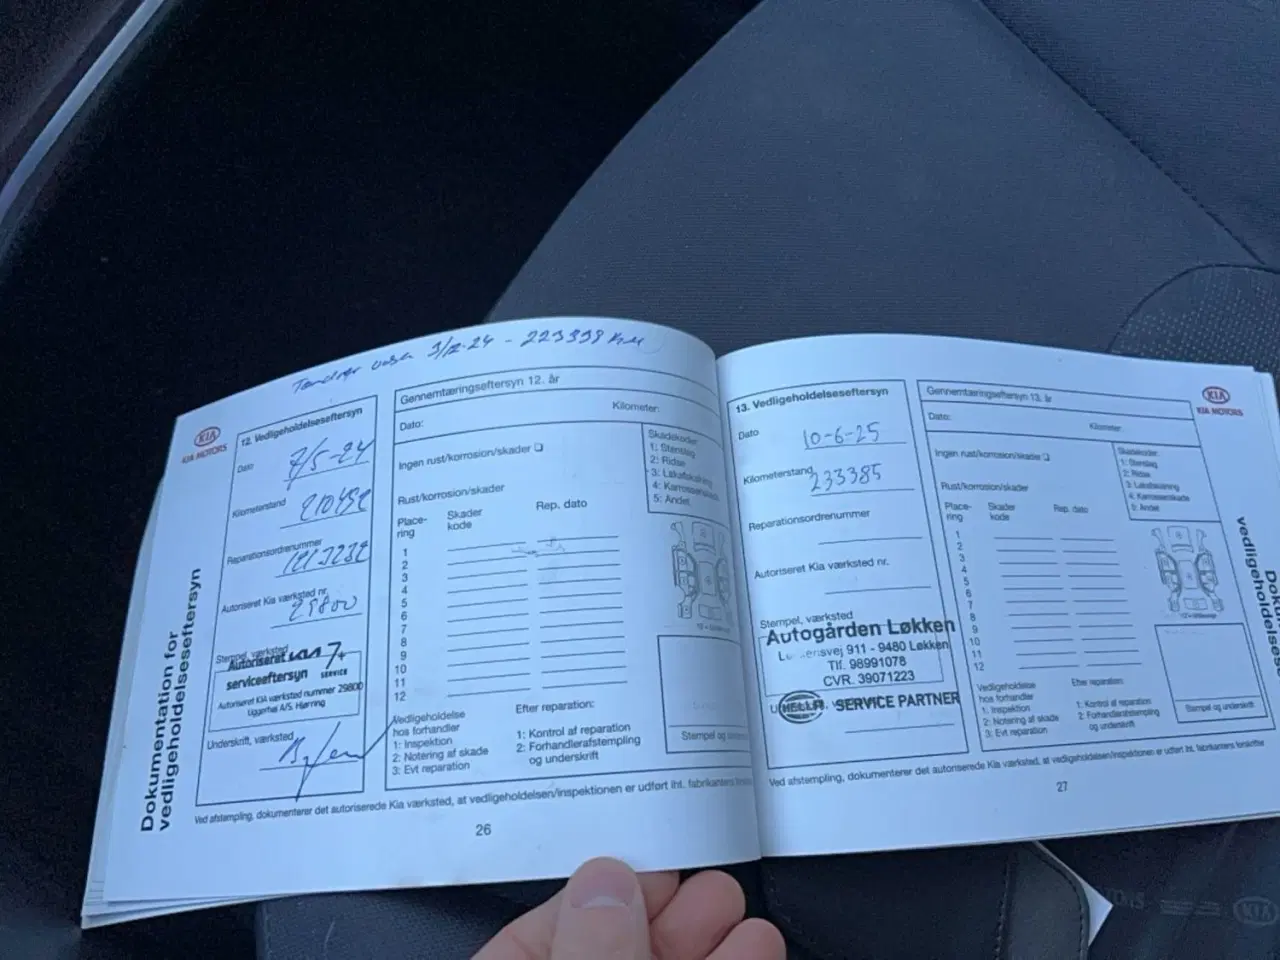 3/12-24 - 223398 KM
KIA
KIA MOTORS
Dokumentation for
vedligeholdelseseftersyn
12. Vedligeholdelseseftersyn
Dato
7/5-24
Kilometerstand
210492
Reparationsordrenummer
Autoriseret Kia værksted nr.
29800
Stempel, værksted
Autoriseret KIA
serviceeftersyn SERVICE
Autoriseret KIA værksted nummer 29800
Uggerhøj A/S. Hjørring
Underskrift, værksted
Gennemtæringseftersyn 12. år
Kilometer:
Dato:
Ingen rust/korrosion/skader
Rust/korrosion/skader
Skadekoder
1: Stenslag
2: Ridse
3: Lakafskalning
4: Karrosseriskade
5: Andet
Place-
ring
Skader
kode
Rep. dato
1
2
3
4
5
6
7
8
9
10
11
12
Vedligeholdelse
hos forhandler
1: Inspektion
2: Notering af skade
3: Evt reparation
Efter reparation:
1: Kontrol af reparation
2: Forhandlerafstempling
og underskrift
Stempel og
Ved afstempling, dokumenterer det autoriserede Kia værksted, at vedligeholdelsen/inspektionen er udført iht. fabrikantens
26
13. Vedligeholdelseseftersyn
Dato
10-6-25
Kilometerstand
233385
Reparationsordrenummer
Autoriseret Kia værksted nr.
Stempel, værksted
Autogården Løkken
911 - 9480 Løkken
Tlf. 98991078
CVR. 39071223
HELLA SERVICE PARTNER
Gennemtæringseftersyn 13. år
Kilometer:
Dato:
Ingen rust/korrosion/skader
Rust/korrosion/skader
Skadekoder
1: Stenslag
2: Ridse
3: Lakafskalning
4: Karrosseriskade
5: Andet
Place-
ring
Skader
kode
Rep. dato
1
2
3
4
5
6
7
8
9
10
11
12
Vedligeholdelse
hos forhandler
1: Inspektion
2: Notering af skade
3: Evt reparation
Efter reparation:
1: Kontrol af reparation
2: Forhandlerafstempling
og underskrift
Stempel og underskrift
Ved afstempling, dokumenterer det autoriserede Kia værksted, at vedligeholdelsen/inspektionen er udført iht. fabrikantens forskrifter
27
KIA
KIA MOTORS
vedligeholdelses
KIA